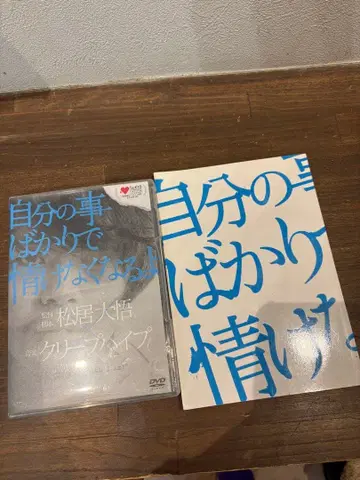 自分の事
ばかりで
情けなくなるよ
松居大悟
クリープハイプ
DVD
自分の事
ばかり
情けな